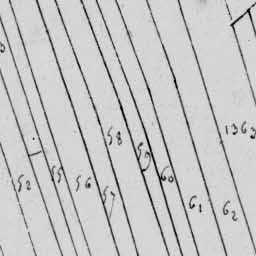 1363
58
59
60
52
55
56
57
61
62